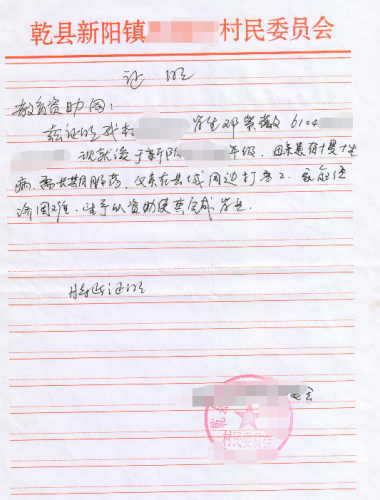 乾县新阳镇 村民委员会
证明
教育资助网：
兹证明我村 学生邓 6104
现就读于新阳 年级，因母亲患有慢性
病，需长期服药，父亲在县城周边打零工，家庭经
济困难，请予以资助使其完成学业。
特此证明
会
村民委员会